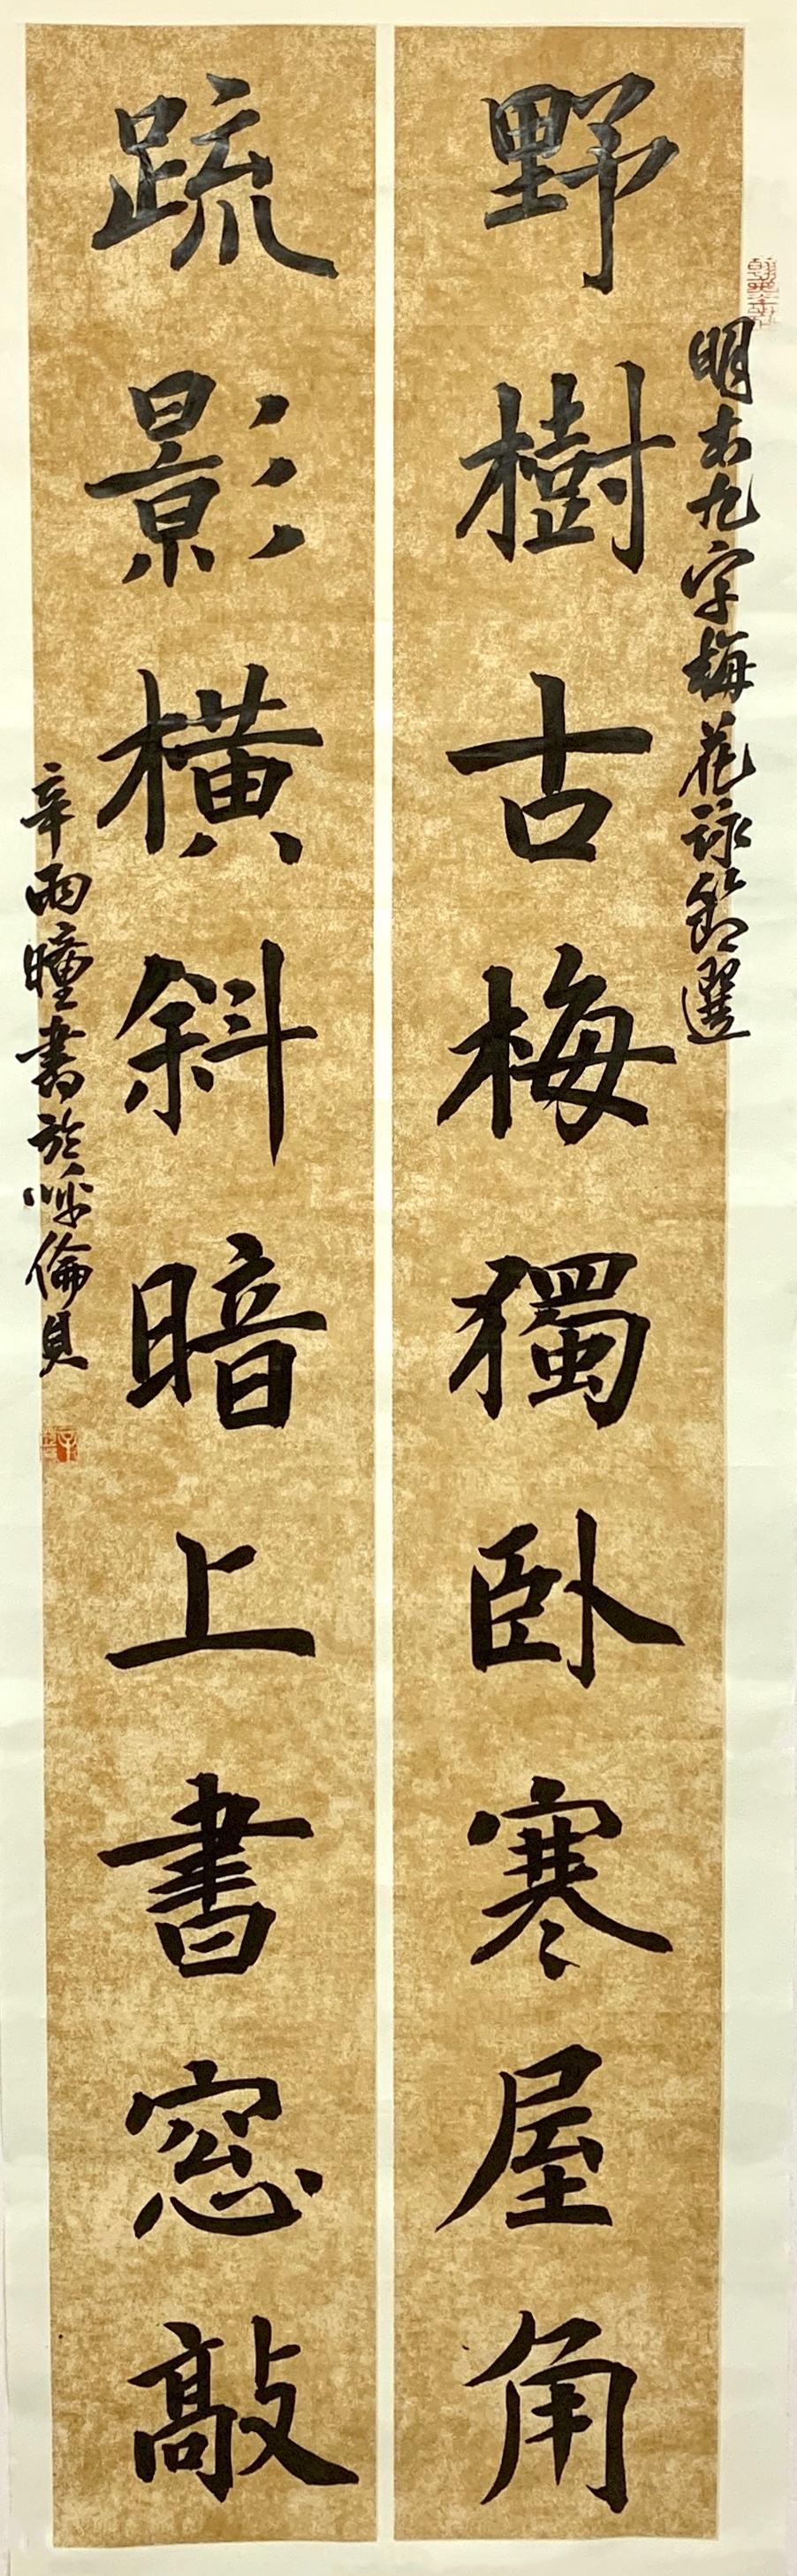 明本九字梅花詠節選
野樹古梅獨卧寒屋角
疏影橫斜暗上書窓敲
辛雨瞳書於呼倫貝